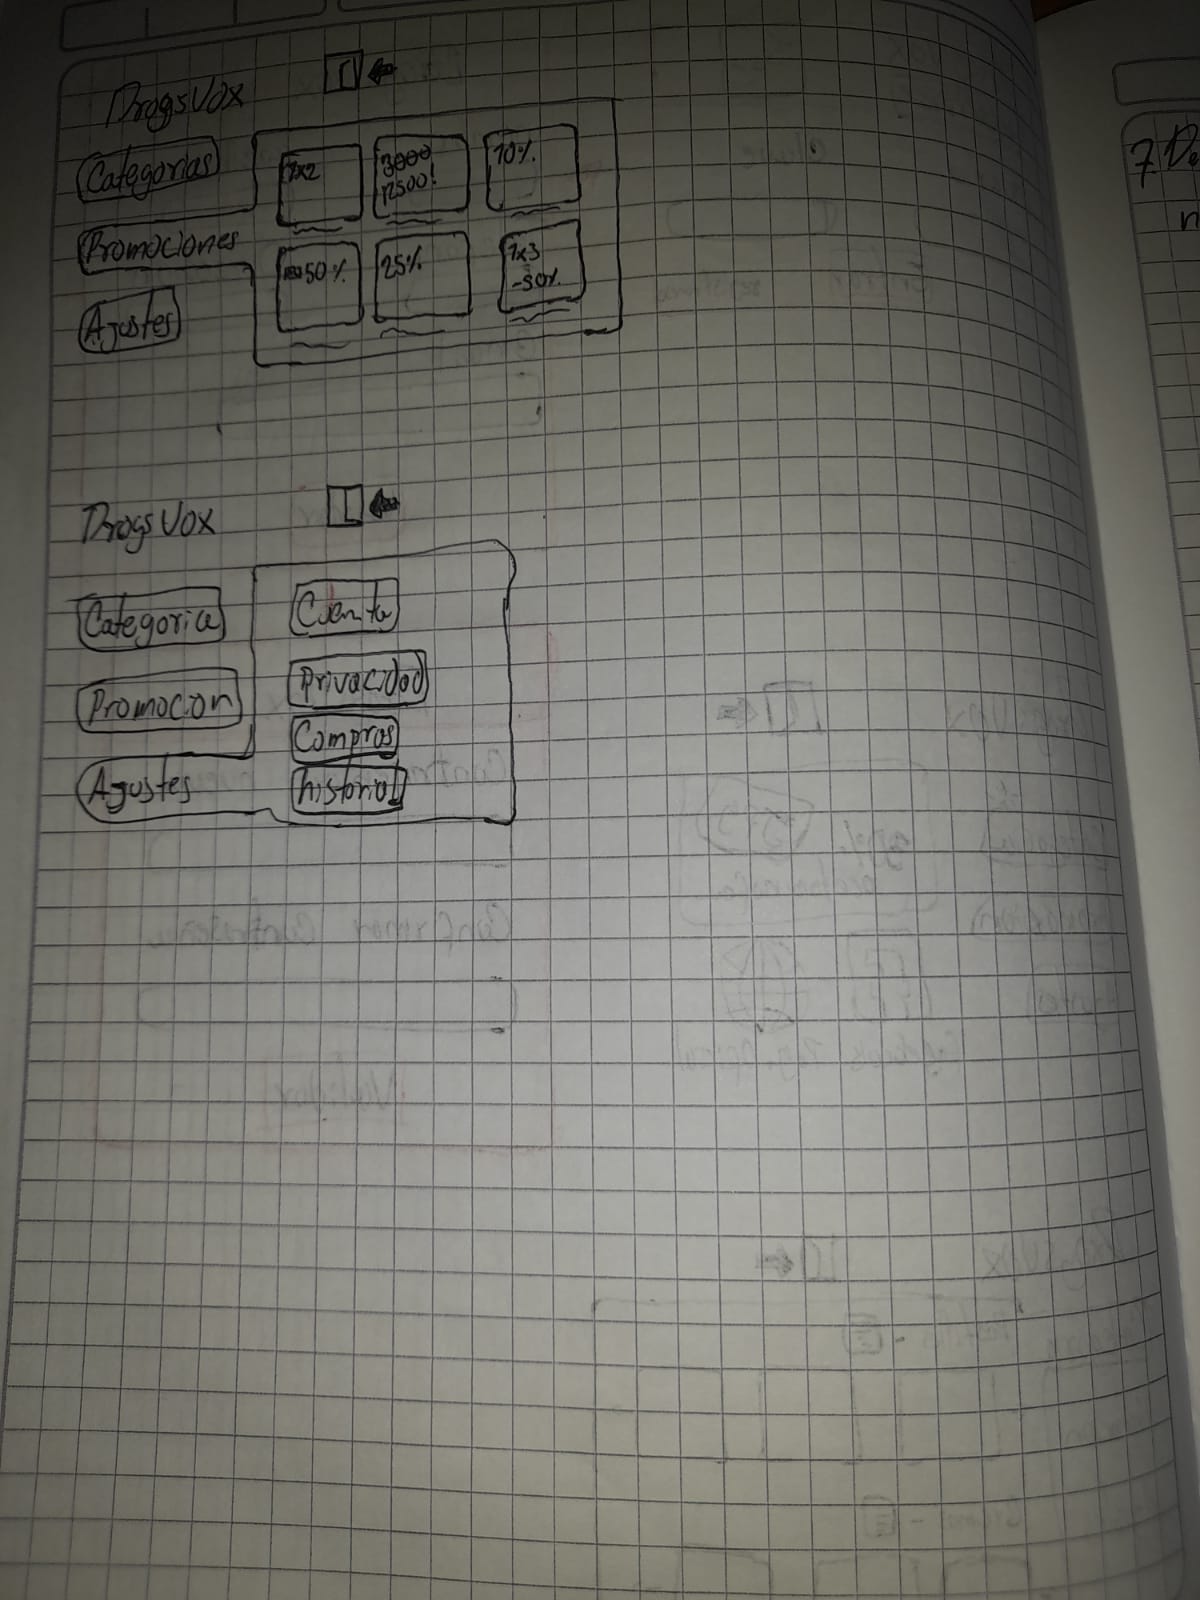 DrogsVox
Categorias
Promociones
Agustes
2x2
3000
12500!
10%
50%
25%
7x3
-50%
DrogsVox
Categoria
Promocion
Agustes
Cuenta
Privacidad
Compras
historial
7. De